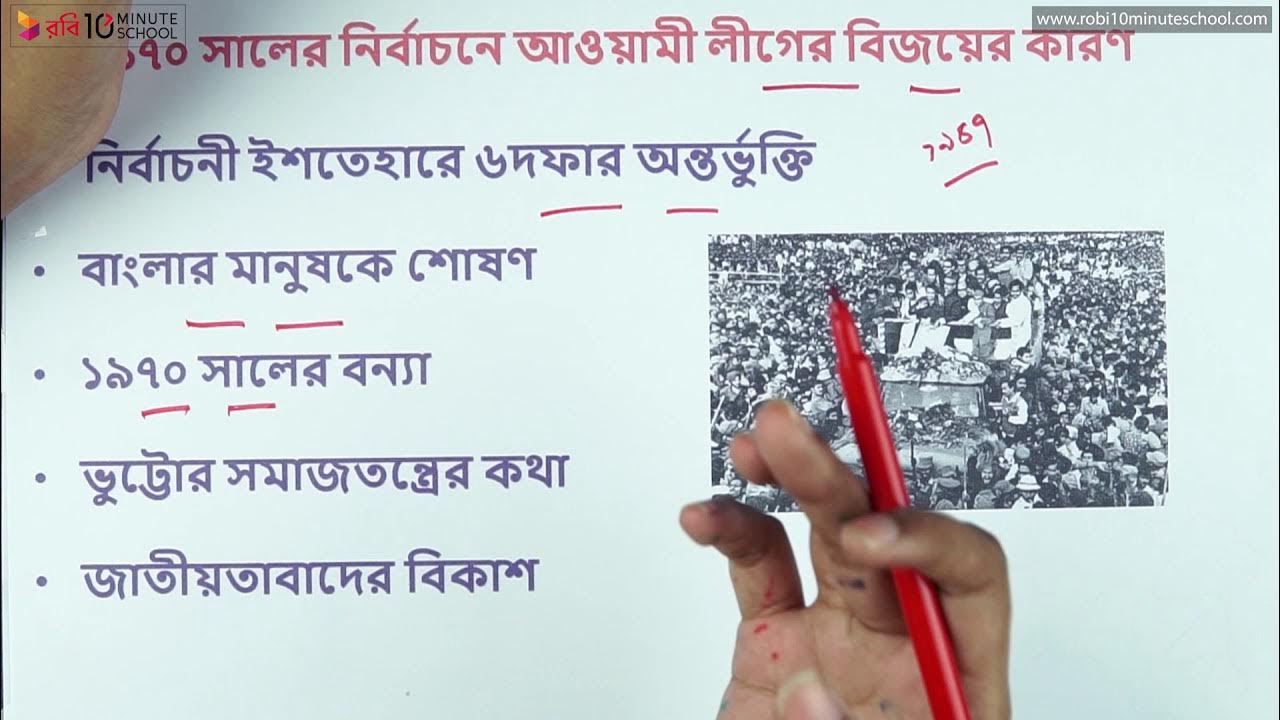 রবি 10 MINUTE SCHOOL
www.robi10minuteschool.com
১৯৭০ সালের নির্বাচনে আওয়ামী লীগের বিজয়ের কারণ
নির্বাচনী ইশতেহারে ৬দফার অন্তর্ভুক্তি
১৯৪৭
• বাংলার মানুষকে শোষণ
• ১৯৭০ সালের বন্যা
• ভুট্টোর সমাজতন্ত্রের কথা
• জাতীয়তাবাদের বিকাশ